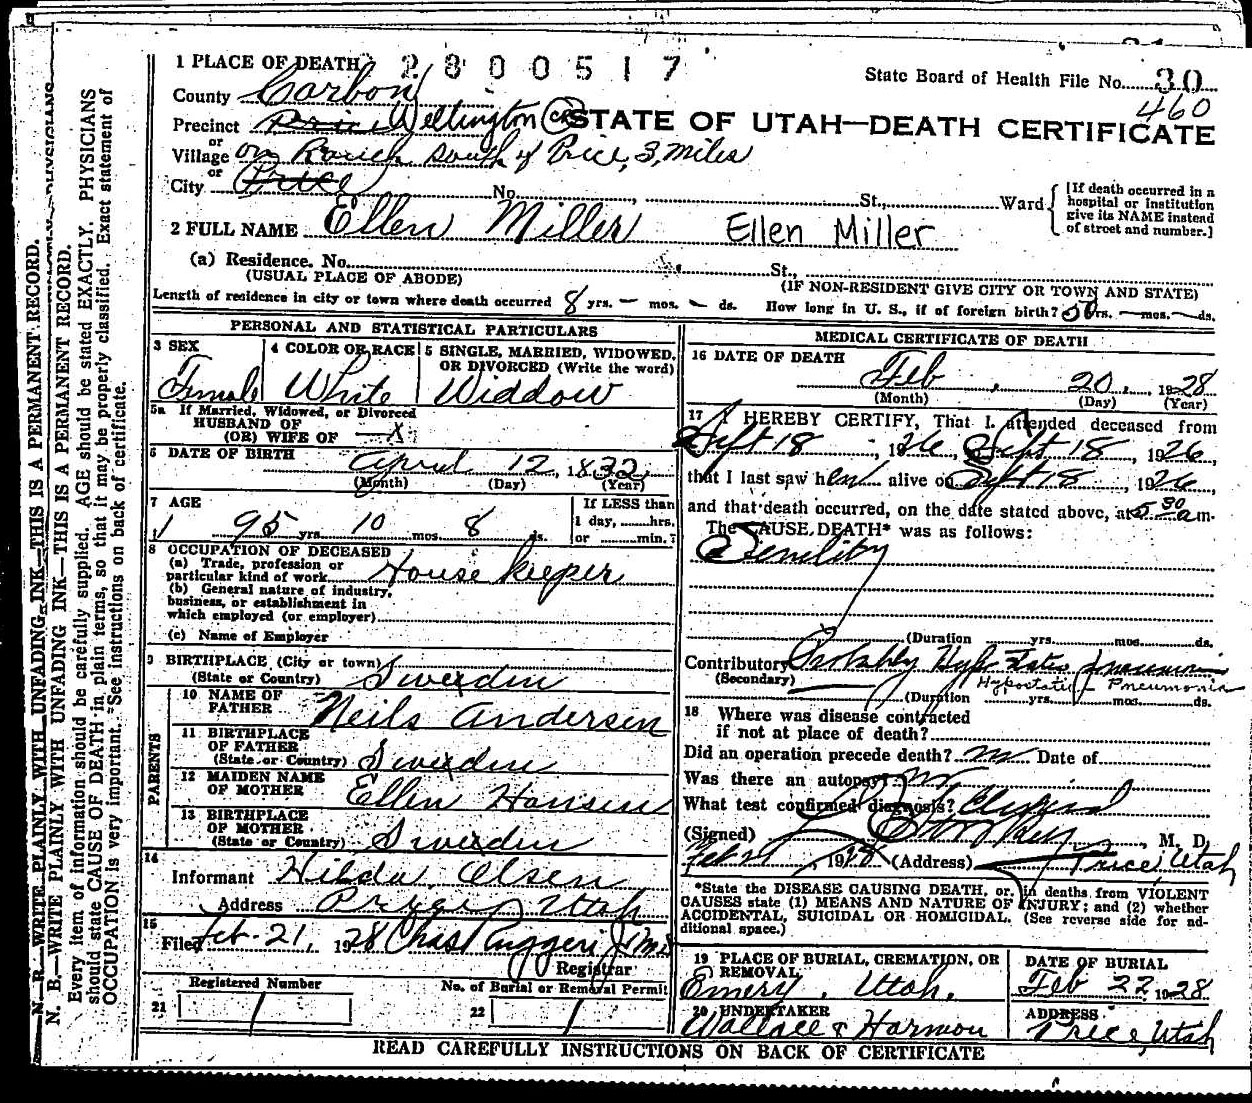 1 PLACE OF DEATH 2 8 0 0 5 1 7
State Board of Health File No. 30
460
County Carbon
STATE OF UTAH—DEATH CERTIFICATE
Precinct Price Wellington
or
Village on Ranch south of Price, 3, Miles
or
City Price No. , St., Ward
[If death occurred in a hospital or institution give its NAME instead of street and number.]
2 FULL NAME Ellen Miller Ellen Miller
(a) Residence. No. St.,
(USUAL PLACE OF ABODE) (IF NON-RESIDENT GIVE CITY OR TOWN AND STATE)
Length of residence in city or town where death occurred 8 yrs. – mos. – ds. How long in U. S., if of foreign birth? 50 yrs. – mos. – ds.
PERSONAL AND STATISTICAL PARTICULARS
3 SEX
Female
4 COLOR OR RACE
White
5 SINGLE, MARRIED, WIDOWED,
OR DIVORCED (Write the word)
Widdow
5a If Married, Widowed, or Divorced
HUSBAND OF
(OR) WIFE OF – X
6 DATE OF BIRTH
April 12, 1832
(Month) (Day) (Year)
7 AGE
95 yrs. 10 mos. 8 ds.
If LESS than
1 day, hrs.
or min.?
8 OCCUPATION OF DECEASED
(a) Trade, profession or
particular kind of work House keeper
(b) General nature of industry,
business, or establishment in
which employed (or employer)
(c) Name of Employer
9 BIRTHPLACE (City or town)
(State or Country) Swerdin
PARENTS
10 NAME OF
FATHER Neils Andersen
11 BIRTHPLACE
OF FATHER
(State or Country) Swerdin
12 MAIDEN NAME
OF MOTHER Ellen Hansen
13 BIRTHPLACE
OF MOTHER
(State or Country) Swerdin
14
Informant Hilda Olsen
Address Price, Utah
15
Filed Feb. 21, 1928 Chas Ruggeri Jr
Registrar
Registered Number
21 1
No. of Burial or Removal Permit
22 1
MEDICAL CERTIFICATE OF DEATH
16 DATE OF DEATH
Feb, 20, 1928
(Month) (Day) (Year)
17 I HEREBY CERTIFY, That I attended deceased from
Sept 18, 1926 Sept 18, 1926,
that I last saw her alive on Sept 18, 1926
and that death occurred, on the date stated above, at 5 30 a m.
The CAUSE DEATH* was as follows:
Senility
(Duration yrs. mos. ds.
Contributory Probably Hypostatic pneumonia
(Secondary) Hypostatic Pneumonia
(Duration yrs. mos. ds.
18 Where was disease contracted
if not at place of death?
Did an operation precede death? no Date of
Was there an autopsy? no
What test confirmed diagnosis? Clinical
(Signed) , M. D.
Feb 21, 1928 (Address) Price, Utah
*State the DISEASE CAUSING DEATH, or, in deaths from VIOLENT
CAUSES state (1) MEANS AND NATURE OF INJURY; and (2) whether
ACCIDENTAL, SUICIDAL OR HOMICIDAL. (See reverse side for ad-
ditional space.)
19 PLACE OF BURIAL, CREMATION, OR
REMOVAL
Emery, Utah.
DATE OF BURIAL
Feb 22, 1928
20 UNDERTAKER
Wallace & Harmon
ADDRESS
Price, Utah
READ CAREFULLY INSTRUCTIONS ON BACK OF CERTIFICATE
N. B.—WRITE PLAINLY WITH UNFADING INK—THIS IS A PERMANENT RECORD.
N. B.—WRITE PLAINLY WITH UNFADING INK—THIS IS A PERMANENT RECORD.
Every item of information should be carefully supplied. AGE should be stated EXACTLY. PHYSICIANS
should state CAUSE OF DEATH in plain terms, so that it may be properly classified. Exact statement of
OCCUPATION is very important. See instructions on back of certificate.